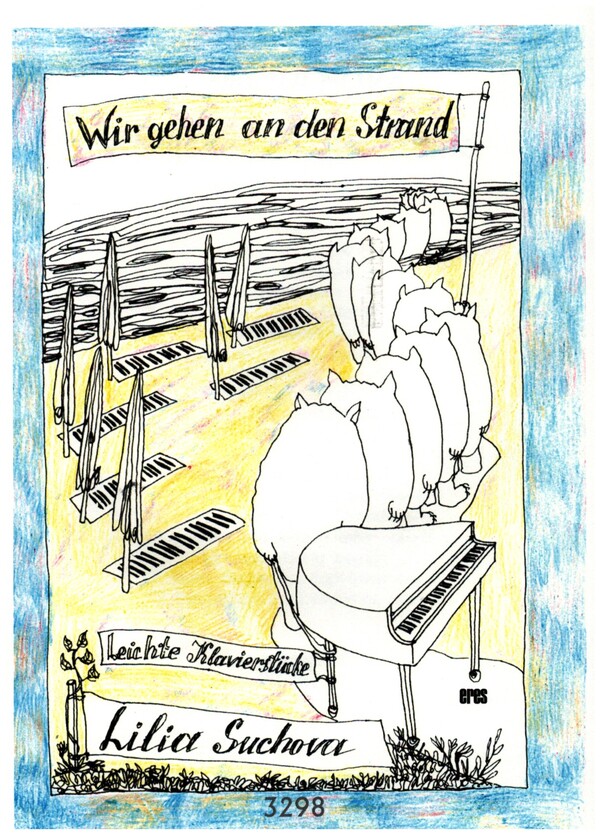 Wir gehen an den Strand
Leichte Klavierstücke
eres
Lilia Suchova
3298